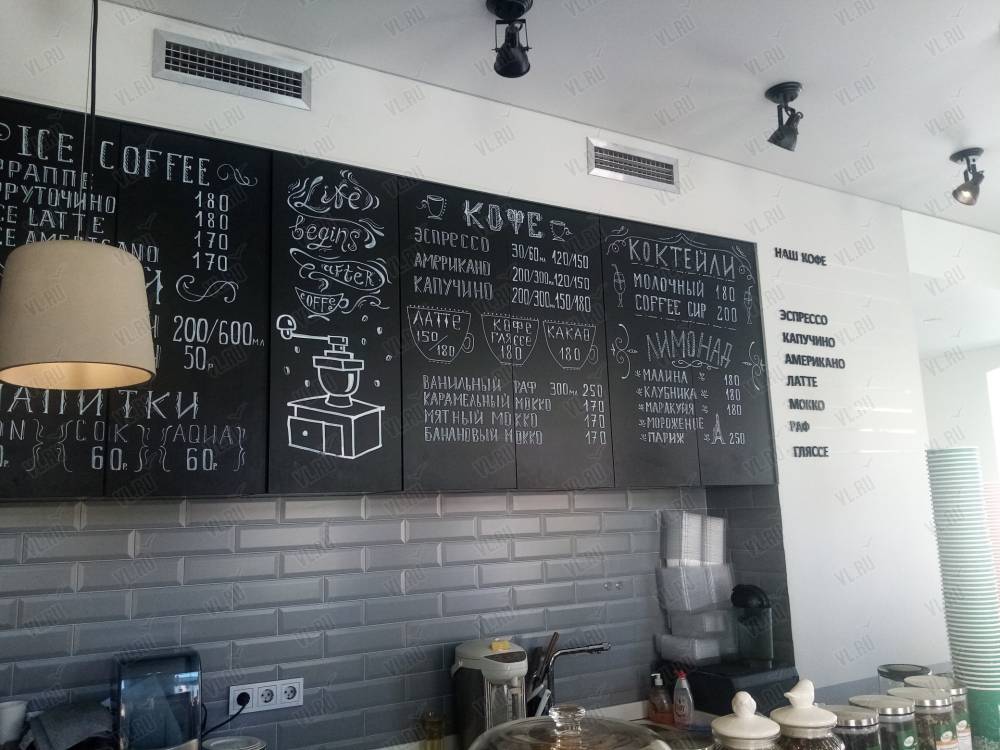 ICE COFFEE
РАППЕ 180
ФРУТОЧИНО 180
CE LATTE 170
CE AMERICANO 170
Й
200/600мл
50р.
НАПИТКИ
COK AQUA
60р. 60р.
Life
begins
after
COFFE
КОФЕ
ЭСПРЕССО 30/60мл 120/150
АМЕРИКАНО 200/300мл 120/150
КАПУЧИНО 200/300мл 150/180
ЛАТТЕ
150/180
КОФЕ
ГЛЯССЕ
180
КАКАО
180
ВАНИЛЬНЫЙ РАФ 300мл 250
КАРАМЕЛЬНЫЙ МОККО 170
МЯТНЫЙ МОККО 170
БАНАНОВЫЙ МОККО 170
КОКТЕЙЛИ
МОЛОЧНЫЙ 180
COFFEE СИР 200
ЛИМОНАД
*МАЛИНА * 180
*КЛУБНИКА * 180
*МАРАКУЙЯ * 180
*МОРОЖЕНОЕ
*ПАРИЖ 250
НАШ КОФЕ
ЭСПРЕССО
КАПУЧИНО
АМЕРИКАНО
ЛАТТЕ
МОККО
РАФ
ГЛЯССЕ
VL.RU